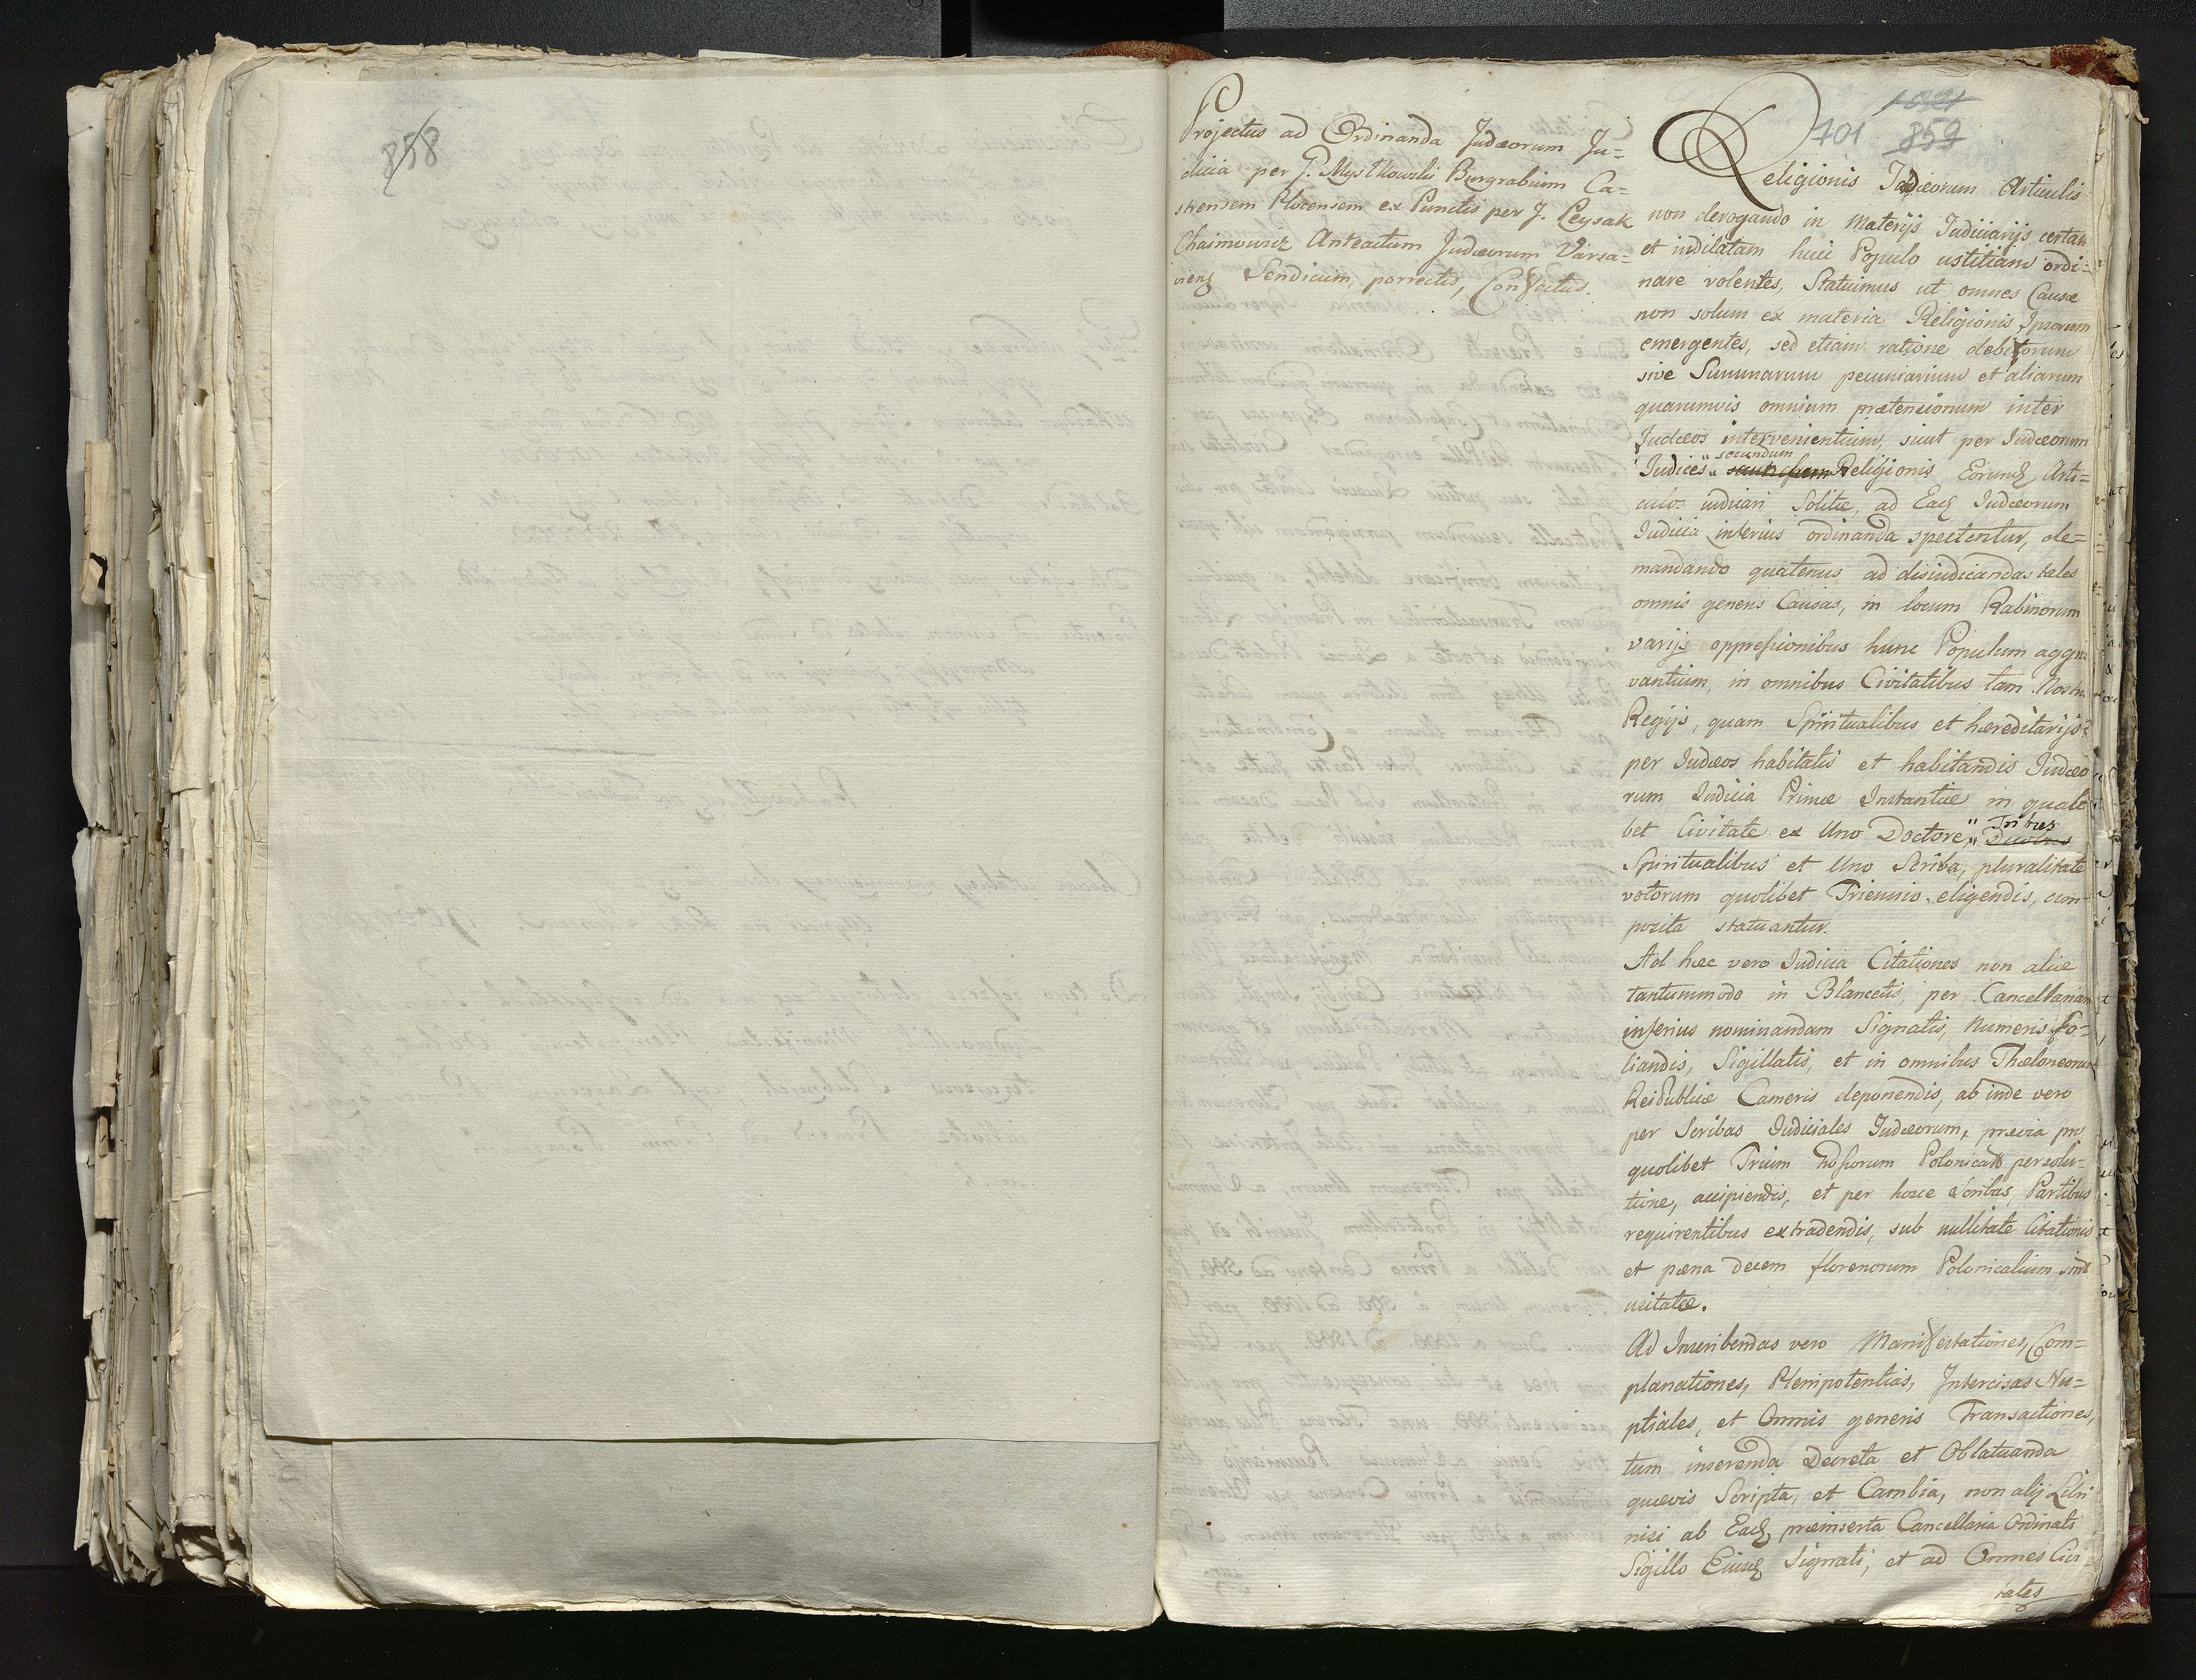 858
Projectus ad Ordinanda Judæorum Ju=
dicia per J. Mystkowski Burgrabium Ca=
strensem Plocensem ex Punctis per J. Leysak
Chaimowicz Anteactum Judæorum Varsa=
viens Sendicum, porrectis, Confectus.
1021
701 859
Religionis Judæorum Articulis
non derogando in Materijs Judiciarijs certam
et indilatam huic Populo iustitiam ordi=
nare volentes, Statuimus ut omnes Causæ
non solum ex materia Religionis Ipsorum
emergentes, sed etiam ratione debitorum
sive Summarum pecuniarium et aliarum
quarumvis omnium prætensionum inter
Judæos intervenientium, sicut per Judæorum
secundum
Judices Religionis Eorund Arti=
culos iudicari Solitæ, ad Ead Judæorum
Judicia inferius ordinanda spectentur, de=
mandando quatenus ad disiudicandas tales
omnis generis Causas, in locum Rabinorum
varijs oppressionibus hunc Populum aggra
vantium, in omnibus Civitatibus tam Nostris
Regijs, quam Spiritualibus et hæreditarijs
per Judæos habitatis et habitandis Judæo
rum Judicia Primæ Instantiæ in quali
bet Civitate ex Uno Doctore, Tribus
Duobus
Spiritualibus et Uno Scriba, pluralitate
votorum quolibet Triennio eligendis, com
posita statuantur.
Ad hæc vero Judicia Citationes non aliæ
tantummodo in Blancetis, per Cancellariam
inferius nominandam Signatis, Numeris fo=
liandis, Sigillatis, et in omnibus Thæloneorum
Reipublicæ Cameris deponendis, ab inde vero
per Scribas Judiciales Judæorum, prævia pro
quolibet Trium Polonical persolu=
tione, accipiendis, et per hosce Scribas Partibus
requirentibus extradendis, sub nullitate Citationis
et pæna decem florenorum Polonicalium sint
usitatæ.
Ad Inscribendas vero Manifestationes, Com=
planationes, Plenipotentias, Intercisas Nu=
ptiales, et Omnis generis Transactiones,
tum inserenda Decreta et Oblatuanda
quævis Scripta, et Cambia, non alij Libri
nisi ab Ead præinserta Cancellaria Ordinati
Sigillo Eiusd Signati, et ad Omnes Civi=
tates